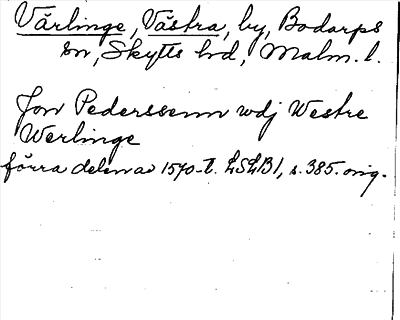 Värlinge, Västra, by, Bodarps
sn, Skytts hd, Malm. l.
Jon Pederssenn wdj Westre
Werlinge
förra delen av 1570-t. LSLB1, s. 385. orig.